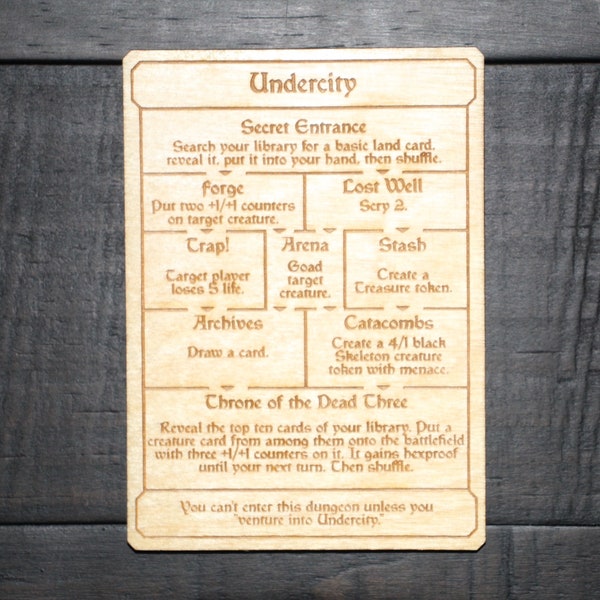 Undercity
Secret Entrance
Search your library for a basic land card,
reveal it, put it into your hand, then shuffle.
Forge
Put two +1/+1 counters
on target creature.
Lost Well
Scry 2.
Trap!
Target player
loses 5 life.
Arena
Goad
target
creature.
Stash
Create a
Treasure token.
Archives
Draw a card.
Catacombs
Create a 4/1 black
Skeleton creature
token with menace.
Throne of the Dead Three
Reveal the top ten cards of your library. Put a
creature card from among them onto the battlefield
with three +1/+1 counters on it. It gains hexproof
until your next turn. Then shuffle.
You can't enter this dungeon unless you
"venture into Undercity."